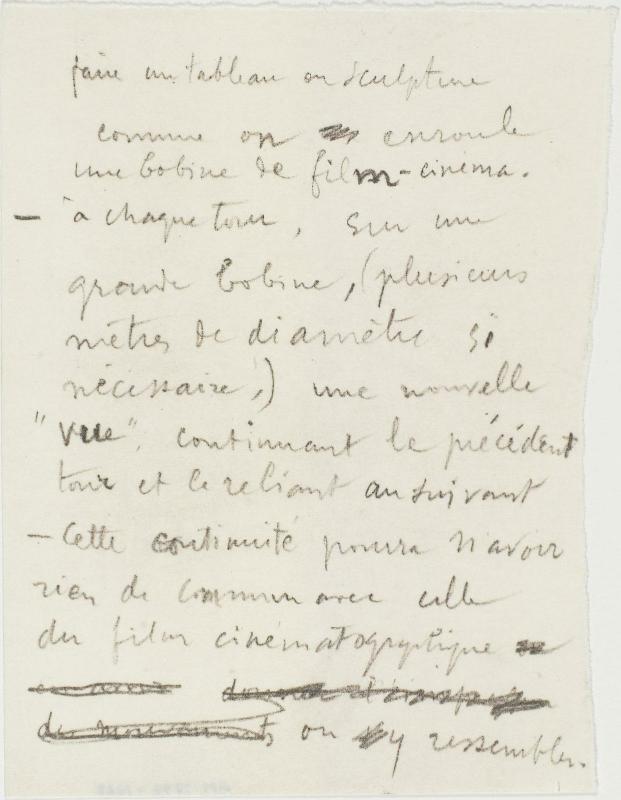 faire un tableau ou sculpture
comme on enroule
une bobine de film-cinéma.
— à chaque tour, sur une
grande bobine, (plusieurs
mètres de diamètre si
nécessaire,) une nouvelle
"vue". continuant le précédent
tour et le reliant au suivant
— Cette continuité pourra n'avoir
rien de commun avec celle
du film cinématographique
ou y ressembler.